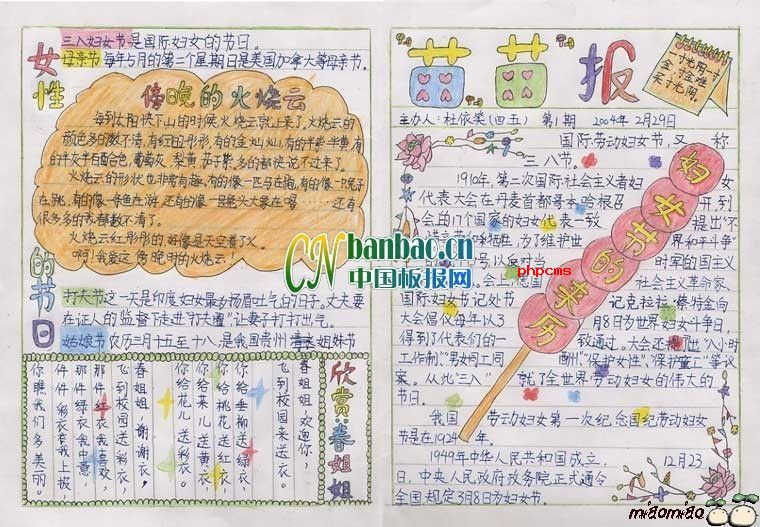 三八妇女节是国际妇女的节日。
母亲节 每年5月的第二个星期日是美国加拿大等母亲节。
女性的节日
傍晚的火烧云
每到太阳快下山的时候火烧云就上来了。火烧云的
颜色多的数不清,有红的彤彤,有的金灿灿,有的半紫半黄,有
的半灰半百合色,葡萄灰、梨黄、茄子紫,多的都快说不过来了。
火烧云的形状也非常有趣,有的像一匹马在跑,有的像一只兔子
在跳,有的像一条鱼在游,还有的像一只
很多的我都数不清了。
火烧云红彤彤的,好像是天空着了火
啊!我爱这傍晚时的火烧云!
打夫节 这一天是印度妇女最多扬眉吐气的日子。丈夫要
在证人的监督下走进"打夫圈"让妻子打打出气。
姑娘节 农历二月十五至十八,是我国贵州 姐妹节
欣赏·春姐姐
春姐姐,欢迎你,
飞到校园来送衣。
你给垂柳送绿衣,
你给桃花送红衣,
你给菜儿送黄衣,
你给花儿送彩衣。
春姐姐,谢谢衣,
飞到校园送彩衣,
那件红衣我喜欢,
件件绿衣我中意,
件件彩衣套我上披,
你瞧我们多美丽。
苗苗报
一寸光阴一寸
金,寸金难
买寸光阴。
主办人:杜依笑(四五) 第1期 2004年2月29日
国际劳动妇女节,又称
三八节。
1910年,第二次国际社会主义者妇女
代表大会在丹麦首都哥本哈根召开,到
会的17个国家的妇女代表一致提出"不
为了维护世界和平斗争"
号以反对当时军的国主义
会上,德国社会主义革命家
国际妇女节记处书记克拉拉·蔡特金向
大会倡仪每年以3月8日为世界妇女斗争日
得到了代表们的一致通过。大会还提出"八小时
工作制","男女同工同酬""保护女性","保护童工"等议
案。从此"三八"就了全世界劳动妇女的伟大的
节日。
我国劳动妇女第一次纪念国纪劳动妇女
节是在1924年。
1949年中华人民共和国成立,12月23
日,中央人民政府政务院正式通令
全国规定3月8日为妇女节。
妇女节的来历
CNbanbao.cn
中国板报网
phpcms
miaomiao